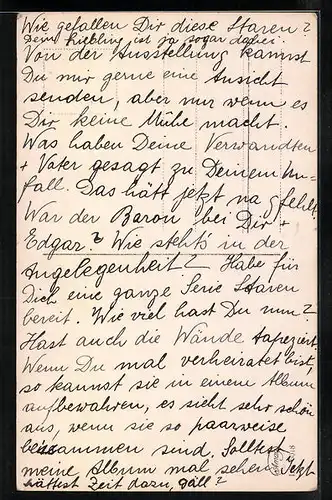 Wie gefallen Dir diese Staren?
Dein Liebling ist ja sogar dabei.
Von der Ausstellung kannst
Du mir gerne eine Ansicht
senden, aber nur wenn es
Dir keine Mühe macht.
Was haben Deine Verwandten
+ Vater gesagt zu Deinem Un-
fall. Das hätt jetzt na gfehlt.
War der Baron bei Dir +
Edgar? Wie steht's in der
Angelegenheit? Habe für
Dich eine ganze Serie Staren
bereit. Wie viel hast Du nun?
Hast auch die Wände tapeziert.
Wenn Du mal verheiratet bist,
so kannst sie in einem Album
aufbewahren, es sieht sehr schön
aus, wenn sie so paarweise
beisammen sind. Solltest
meine Album mal sehen. Jetzt
hättest Zeit dazu, gäll?